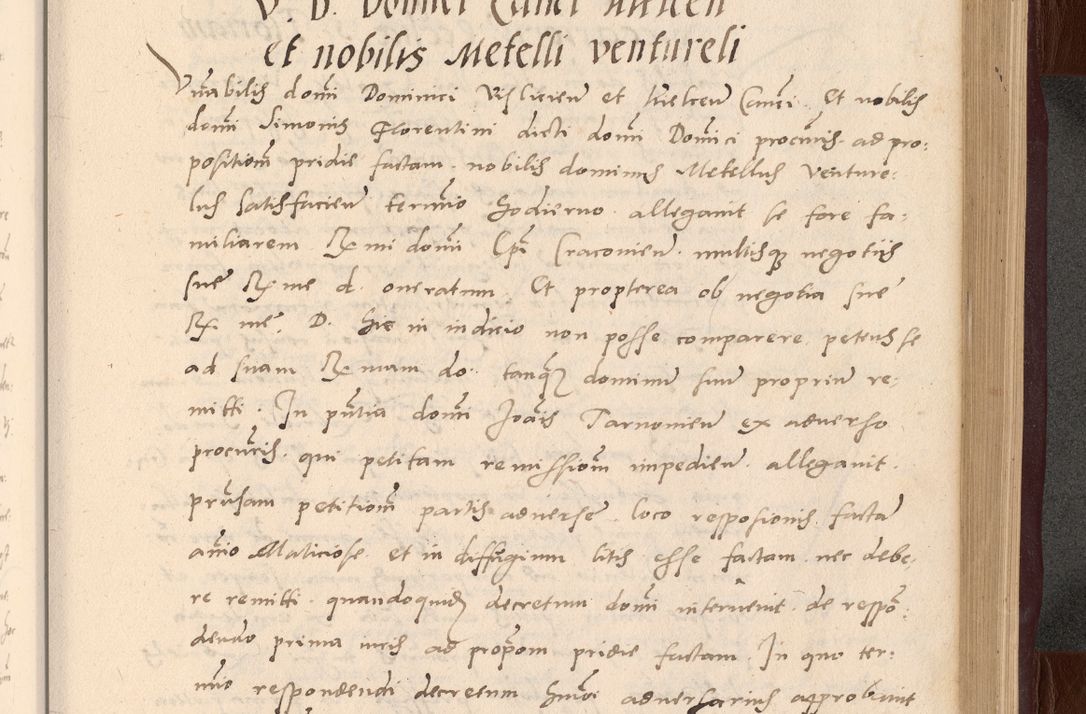 et nobilis Metelli ventureli
Vnabilis domi Dominici Visliciens et Kielcens Canci. Et nobilis
domi Simonis Florentini dicti domi Domici procuris ad pro:
positiom pridie factam. nobilis dominus Metellus Venture:
lus satisfacien termio hodierno allegauit se fore fa:
miliarem R. mi domi Epi Craconiens multisque negotiis
sue R. me d. oneratum. Et propterea ob negotia sue
R. me. D. hic in iudicio non posse comparere petens se
ad suam R. mam do. tanque dominum suum proprium re:
mitti. In pntia domi Joais Tarnoniens ex aduerso
procuris. qui petitam remissiom impedien. allegauit.
prnsam petitiom partis aduerse loco resposionis facta
aio Maliciose et in diffugium litis esse factam nec debe:
re remitti. quandoquid decretum domi interuenit de respo:
dendo prima iuris ad propom pridie factam. In quo ter:
mio respondendi decretum hmoi aduersarius approbauit